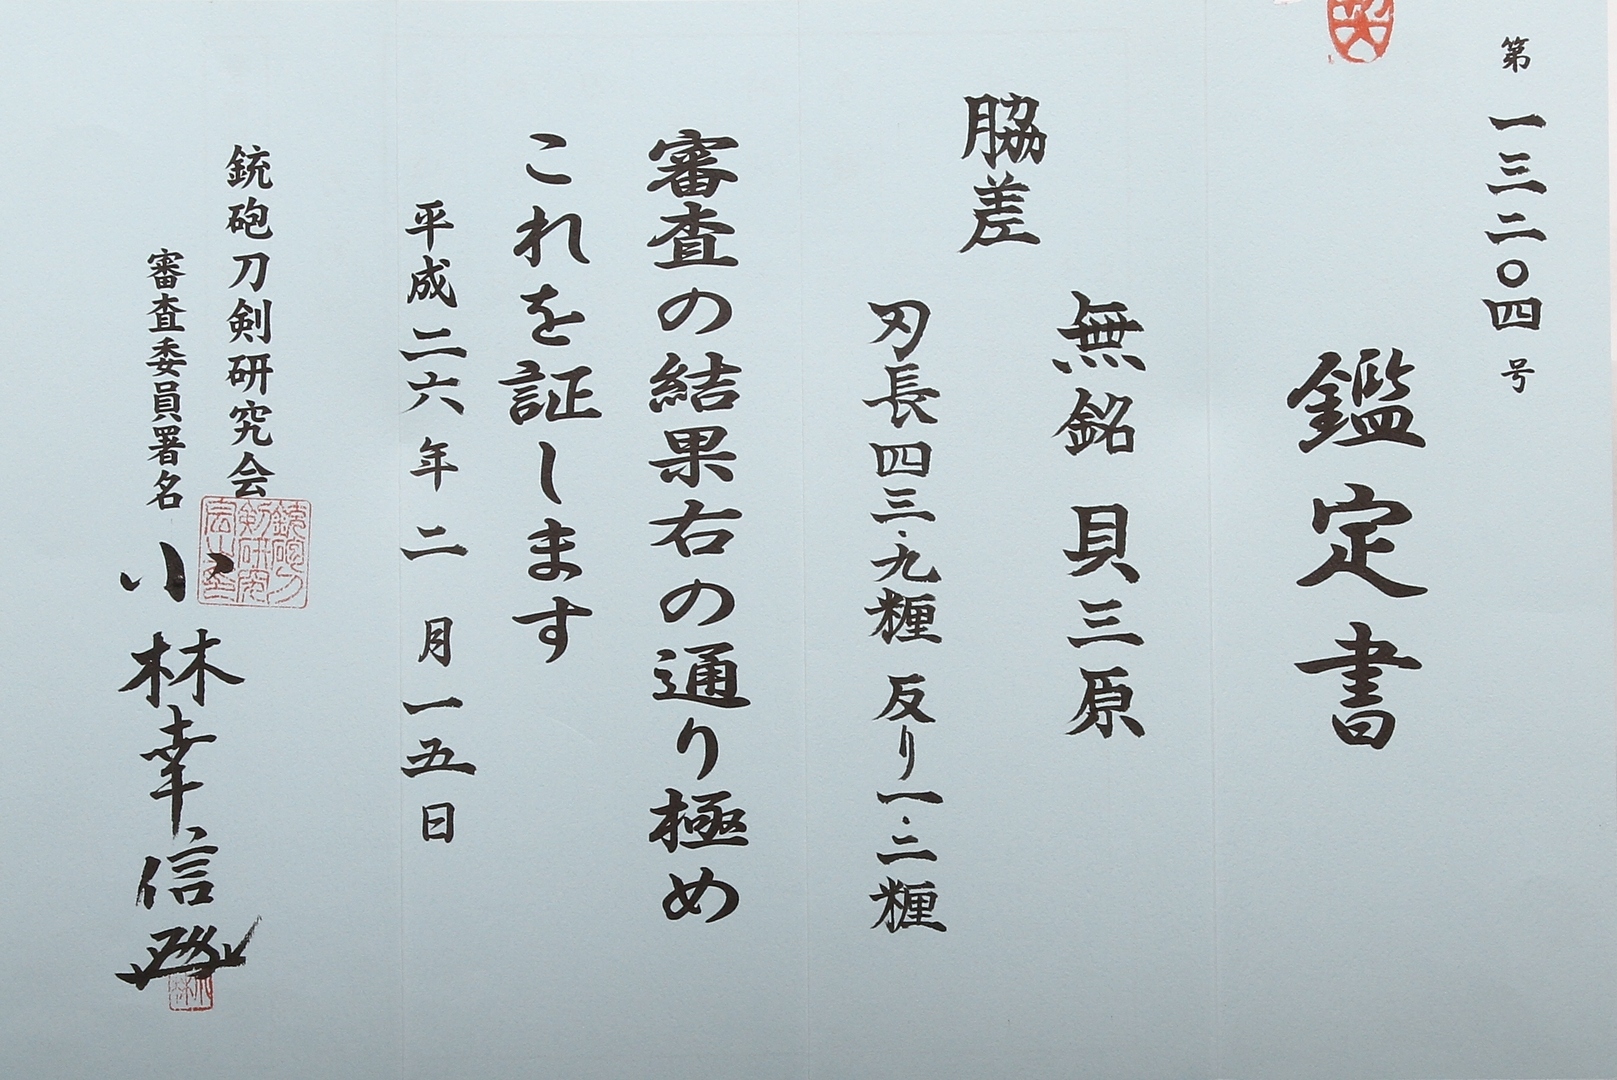 第一三二〇四号
鑑定書
無銘 貝三原
脇差
刃長四三・九糎 反り一・二糎
審査の結果右の通り極め
これを証します
平成二六年二月一五日
銃砲刀剣研究会
審査委員署名 小林幸信